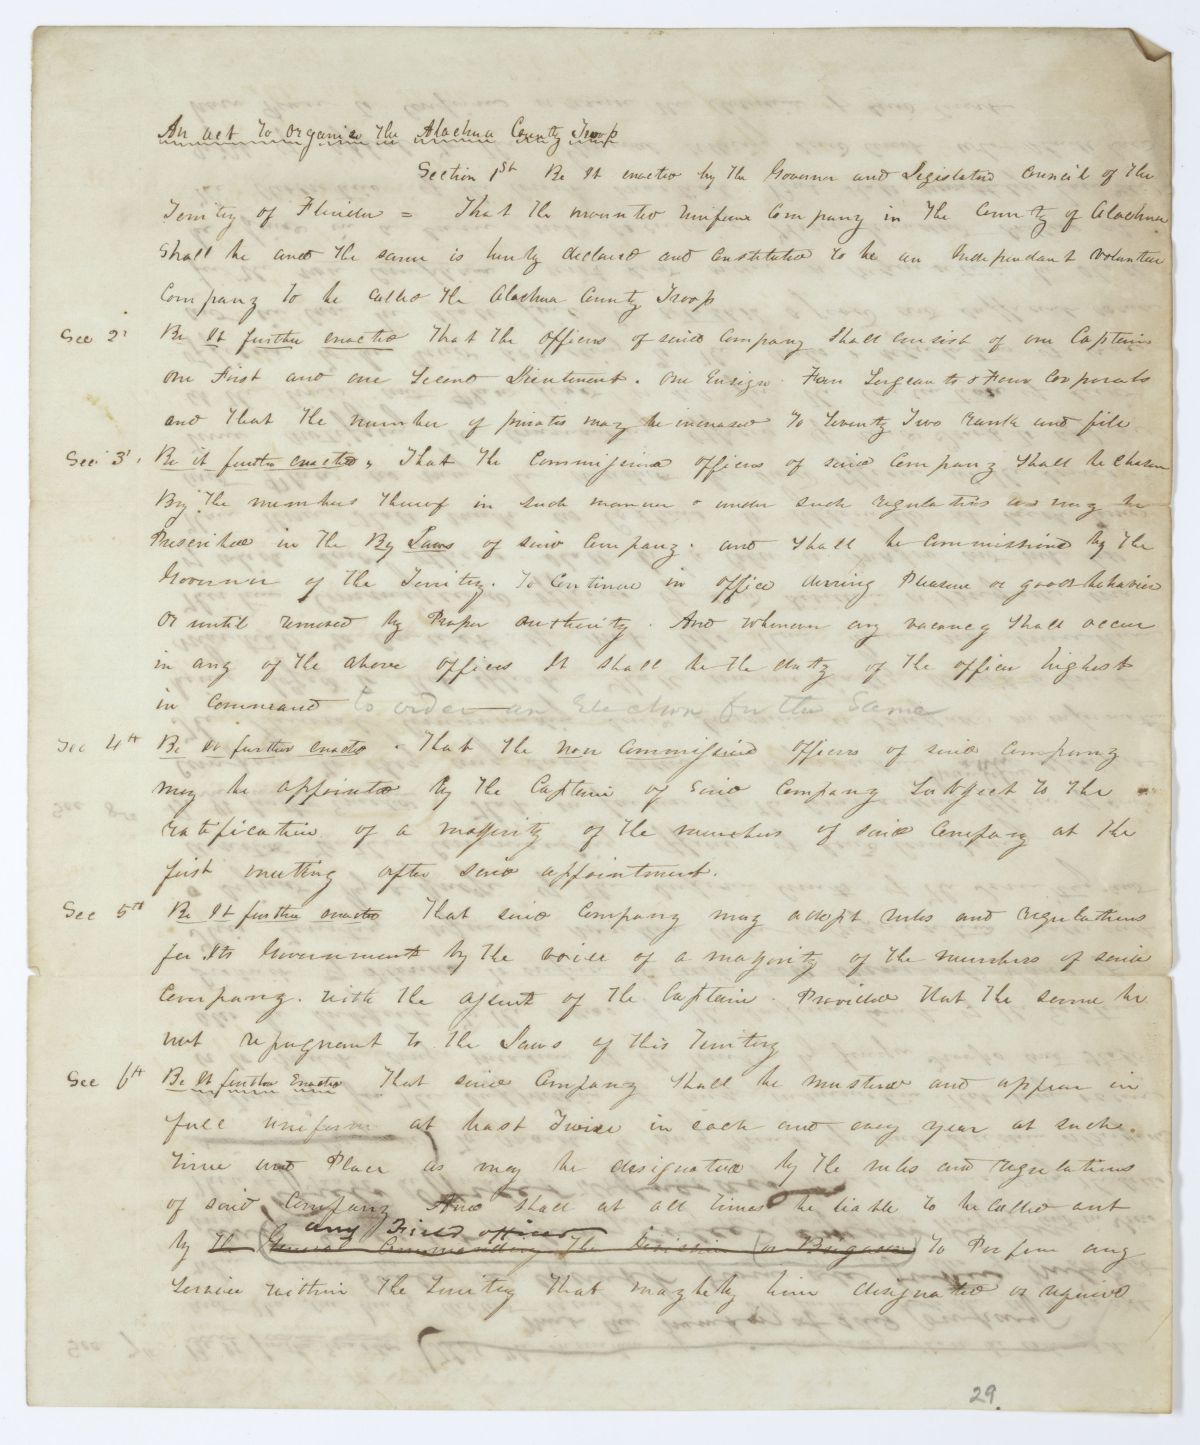 An act to organise the Alachua County Troop
Section 1st Be It enacted by the Governor and Legislative Council of the
Territory of Florida = That the mounted Uniform Company in the County of Alachua
Shall be and the same is hereby declared and Constituted to be an Independant Volunteer
Company to be called the Alachua County Troop
Sec 2d Be It further enacted That the officers of said Company Shall consist of one Captain
one First and one Second Lieutenant. one Ensign Four Sergeants & Four Corporals
and that the number of privates may be increased to Seventy Two rank and file
Sec 3d. Be it further enacted, That the Commissioned officers of said Company Shall be Chosen
By The members thereof in such manner & under such regulations as may be
Prescribed in the By Laws of said Company. and Shall be Commissioned by the
Governor of the Territory. To Continue in office during Pleasure or good behavior
or until removed by Proper authority. And whenever any vacancy Shall occur
in any of the above offices It shall be the duty of the officer highest
in Command to order an Election for the Same
Sec 4th Be It further enacted. That the non Commissioned officers of said Company
may be appointed by the Captain of Said Company Subject to the
ratification of a majority of the members of said Company at the
first meeting after said appointment.
Sec 5th Be It further enacted That said Company may adopt rules and regulations
for Its Government by the voice of a majority of the members of said
Company. with the assent of the Captain. Provided that the same be
not repugnant to the Laws of this Territory
Sec 6th Be It further Enacted That said Company Shall be mustered and appear in
full uniform at least Twice in each and every year at such
time and Place as may be designated by the rules and regulations
of said Company And Shall at all times be liable to be called out
any Field officer
by the General Commanding the Division (or Brigade) to Perform any
Service within the Territory that may be by him designated or required
29